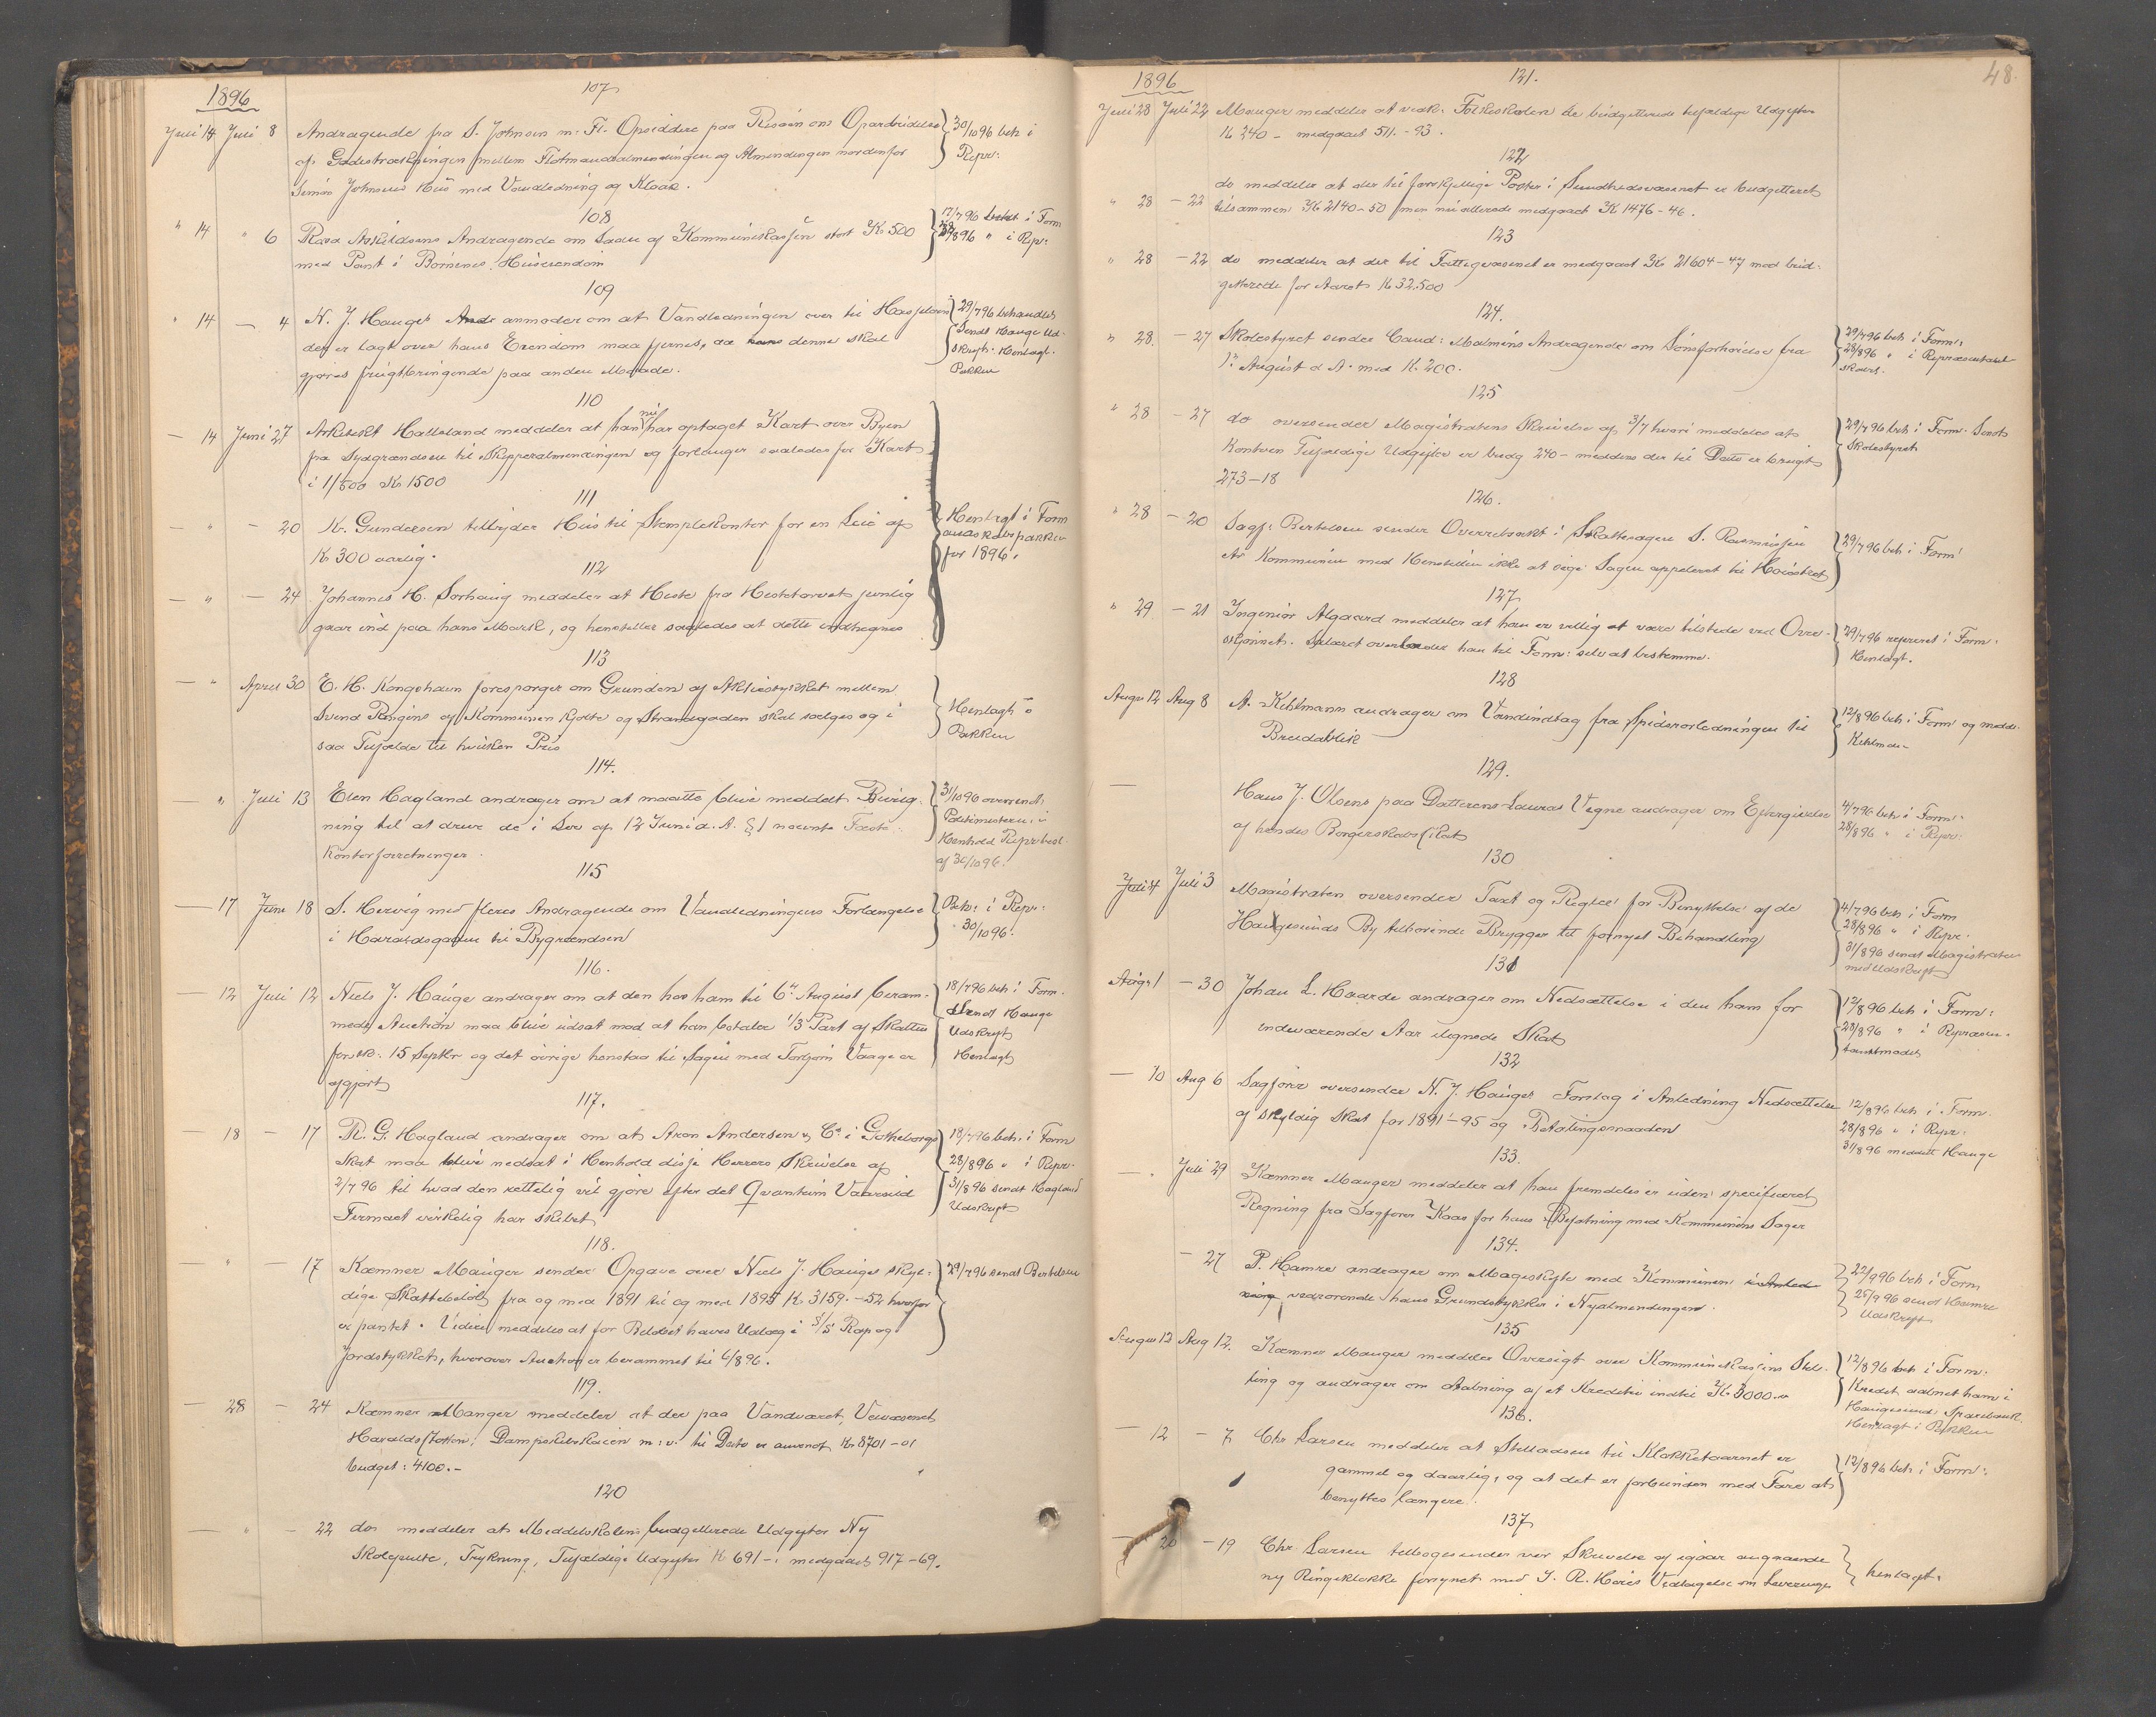 1896
107
Juli 14 Juli 8 Andragende fra S. Johnsen m. Fl. Opsiddere paa Risøen om Oparbeidelse } 30/10 96 beh i
af Gadestrækningen mellem Flotmandsalmendingen og Almendingen nordenfor Repr:
Simon Johnsens Hus med Vandledning og Kloak.
108
" 14 " 6 Rasa Askildsens Andragende om Laan af Kommunekassen stort Kr 500 } 17/7 96 behdt i Form
med Pant i Børnenes Huseiendom 28/8 96 " i Repr:
109
" 14 — 4 N. J. Hauge anmoder om at Vandledningen over til Hasseløen } 29/7 96 behandlet
der er lagt over hans Eiendom maa fjernes, da denne skal Sendt Hauge Ud-
gjøres frugtbringende paa anden Maade. skrift. Henlagt.
Pakken
110
— 14 Juni 27 Arkitekt Halleland meddeler at han nu har optaget Kart over Byen
fra Sydgrændsen til Skipperalmendingen og forlanger saaledes for Kart
i 1/500 Kr 1500
111
— " — 20 K. Gundersen tilbyder Hus til Stempelkontor for en Leie af } Henlagt i Form
Kr 300 aarlig. andskabspakken
for 1896.
112
— " — 24 Johannes H. Sørhaug meddeler at Heste fra Hestetorvet jevnlig
gaar ind paa hans Mark, og henstiller saaledes at dette indhegnes
113
— " April 30 E. H. Kongshavn forespørger om Grunden af Aktiestykket mellem
Svend Risøens og Kommunen Kjøbte og Strandgaden skal sælges og i } Henlagt i
saa Tilfælde til hvilken Pris Pakken
114.
— " Juli 13 Elen Hagland andrager om at maatte blive meddelt Bevilg- } 31/10 96 oversendt
ning til at drive de i Lov af 12 Juni d. A. § 1 nævnte Fæste- Politimesteren i
kontorforretninger. Henhold Repr besl.
af 30/10 96.
115
— 17 Juni 18 S. Hervig med fleres Andragende om Vandledningens Forlængelse } Beh: i Repr:
i Haraldsgaden til Bygrændsen 30/10 96.
116.
— 12 Juli 12 Niels J. Hauge andrager om at den hos ham til 6te August beram- } 18/7 96 beh: i Form.
mede Auktion maa blive udsat mod at han betaler 1/3 Part af Skatten Sendt Hauge
før 15 Septbr og det øvrige henstaa til Sagen med Torgjøn Vaage er Udskrift
afgjort Henlagt
117.
— 18 — 17 R. G. Hagland andrager om at Aron Andersen & Co i Gøtheborgs } 18/7 96 beh: i Form
Skat maa blive nedsat i Henhold disse Herrers Skrivelse af 28/8 96 " i Repr.
2/7 96 til hvad den rettelig vil gjøre efter det Qvantum Vaarsild 31/8 96 sendt Hagland
Firmaet virkelig har skibet Udskrift
118.
— " — 17 Kæmner Mauger sender Opgave over Niels J. Hauges skyl- } 29/7 96 sendt Bertelsen
dige Skattebeløb fra og med 1891 til og med 1895 Kr 3159.-52 hvorfor
er pantet. Videre meddeles at for Beløbet haves Udlæg i S/S Rap og
Jordstykket, hvorover Auktion er berammet til 6/8 96.
119.
— 28 — 24 Kæmner Mauger meddeler at der paa Vandværet, Veivæsenet,
Haraldsstøtten; Dampskibskaien m: v: til Dato er anvendt Kr 8701-01
budget: 4100.-
120
— " — 22 do meddeler at Middelskolens budgetterede Udgifter Ny
Skolepulte, Trykning, Tilfældige Udgifter Kr 691-: medgaaet 917-69.
48.
1896
121.
Juli 28 Juli 22 Mauger meddeler at vedk: Folkeskolen de budgetterede tilfældige Udgifter
Kr 240 - medgaaet 511.-93.
122
do meddeler at der til forskjellige Poster i Sundhedsvæsenet er budgetteret
" 28 — 22 tilsammen Kr 2140-50 men nu allerede medgaaet Kr 1476-46.
123
" 28 — 22 do meddeler at der til Fattigvæsenet er medgaaet Kr 21604-47 mod bud-
getterede for Aaret Kr 32.500
124.
" 28. — 27 Skolestyret sender Cand: Malmins Andragende om Lønsforhøielse fra } 29/7 96 beh i Form:
1ste August d A. med Kr. 200. 28/8 96 " i Repræsentant
skabet.
125
" 28 — 27 do oversender Magistratens Skrivelse af 3/7 hvori meddeles at } 29/7 96 beh i Form. Sendt
Kontoen Tilfældige Udgifter er budg 240- medens der til Dato er brugt Skolestyret
273-18
126.
" 28 — 20 Sagf: Bertelsen sender Overretsakt i Skattesagen S. Rasmussen } 29/7 96 beh i Form
ctr Kommunen med Henstillen ikke at søge Sagen appelleret til Høiesteret
127
" 29 — 21 Ingeniør Algaard meddeler at han er villig at være tilstede ved Over- } 29/7 96 refereret i Form.
skjønnet. Salæret overlader han til Form: selv at bestemme. Henlagt.
128
Augu 12 Aug 8 A. Kihlmann andrager om Vandindtag fra Spidsrørledningen til } 12/8 96 beh i Form og medd.
Breidablik Kihlman
129.
— Hans J. Olsens paa Datterens Lauras Vegne andrager om Eftergivelse 4/7 96 beh i Form:
af hendes Borgerskabsskat 28/8 96 " i Repr:
130
Juli 4 Juli 3 Magistraten oversender Taxt og Regler for Benyttelse af de } 4/7 96 beh i Form
Haugesunds By tilhørende Brygger til fornyet Behandling 28/8 96 " i Repr.
31/8 96 sendt Magistraten
med Udskrift
131
Aug. 1 — 30 Johan L. Haarde andrager om Nedsættelse i den ham for } 12/8 96 beh i Form:
indeværende Aar ilignede Skat 28/8 96 " i Repræsen-
tantmødet
132
— 10 Aug 6 Sagfører oversender N. J. Hauges Forslag i Anledning Nedsættelse 12/8 96 beh i Form
af skyldig Skat for 1891-95 og Betalingsmaaden 28/8 96 " i Repr:
31/8 96 meddelt Hauge
133.
— " Juli 29 Kæmner Mauger meddeler at han fremdeles er uden specificeret
Regning fra Sagfører Kaas for hans Befatning med Kommunens Sager
134.
— 27 P. Hamre andrager om Mageskifte med Kommunen i Anled } 22/9 96 beh i Form
ning vedrørende hans Grundstykker i Nyalmendingen. 25/9 96 sendt Hamre
Udskrift
135
August 12 Aug 12. Kæmner Mauger meddeler Oversigt over Kommunekassens Stil- } 12/8 96 beh i Form:
ling og andrager om Aabning af et Kreditiv indtil Kr 3000.- Kredit aabnet ham i
Haugesunds Sparebank.
Henlagt i Pakken
136.
— 12 — 7 Chr Larsen meddeler at Stilladsen til Klokketaarnet er } 12/8 96 beh i Form:
gammel og daarlig, og at det er forbunden med Fare at
benyttes længere.
137
— 20 — 19 Chr. Larsen tilbagesender vor Skrivelse af igaar angaaende } henlagt.
ny Ringeklokke forsynet med Vedtagelse om Levering